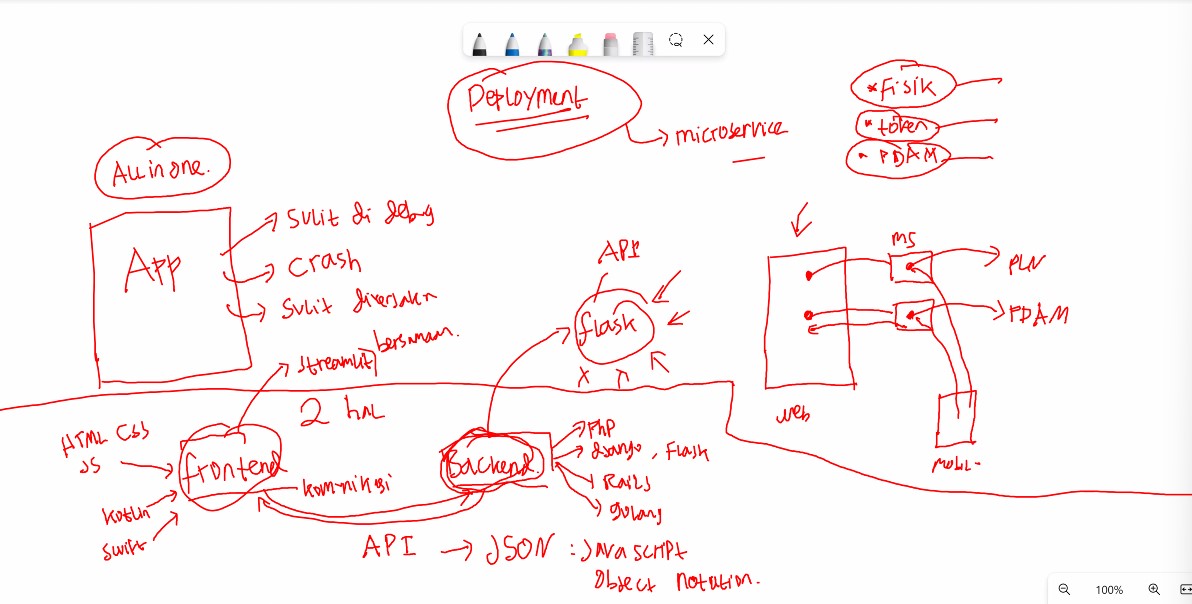 Deployment
microservice
*Fisik
* token
• PDAM
All in one.
App
Sulit di debug
crash
Sulit
bersamaan.
streamlit
API
flask
MS
PLN
PDAM
web
2 hal
HTML CSS
JS
frontend
Kotlin
Swift
komunikasi
Backend.
PHP
django, Flask
Rails
golang
API → JSON : JavaScript
Object Notation.
100%